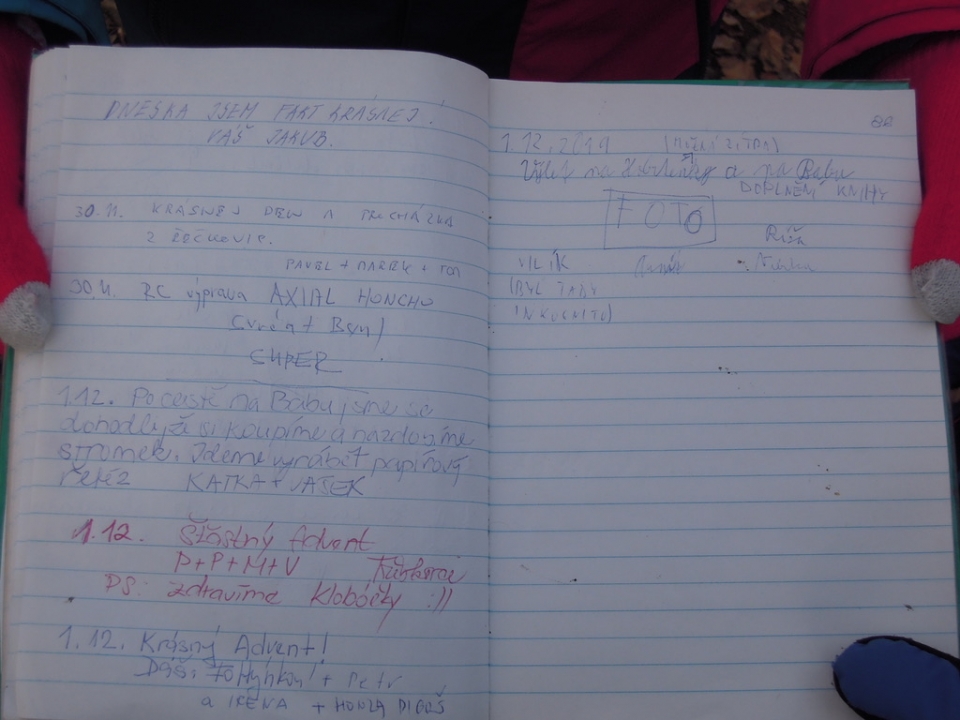 DNESKA JSEM FAKT KRÁSNEJ!
VÁŠ JAKUB.
30.11. KRÁSNEJ DEN A PROCHÁZKA
Z ŘEČKOVIC.
PAVEL + MAREK + TOM
30.11. RC výprava AXIAL HONCHO
SUPER
1.12. Po cestě na Babu jsme se
dohodly, že si koupíme a nazdobíme
stromek. Jdeme vyrábět papírový
řetěz KATKA + VAŠEK
1.12. Šťastný Advent
P+P+M+V
PS: zdravíme Klobočky :))
1.12. Krásný Advent!
+ Petr
a IRENA + HONZA
82
1.12.2019
Výlet na a na Babu
DOPLNĚNÍ KNIHY
FOTO
VILÍK
(BYL TADY
INKOGNITO)